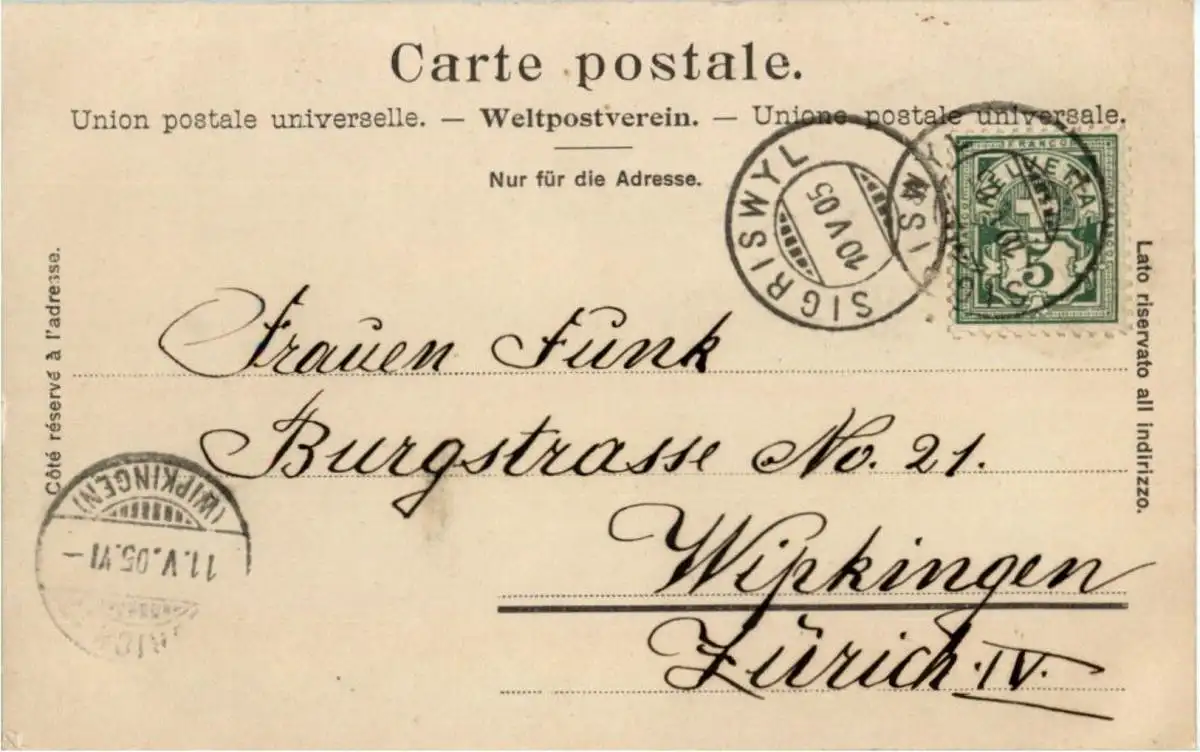 Carte postale.
Union postale universelle. — Weltpostverein. — Unione postale universale.
Nur für die Adresse.
SIGRISWYL
10 V 05
SIGRISWYL
10 V
FRANCO
HELVETIA
5
Côté réservé à l'adresse.
Lato riservato all indirizzo.
Frauen Funk
Burgstrasse No. 21.
Wipkingen
Zürich. IV.
(WIPKINGEN)
11. V. 05. VI –